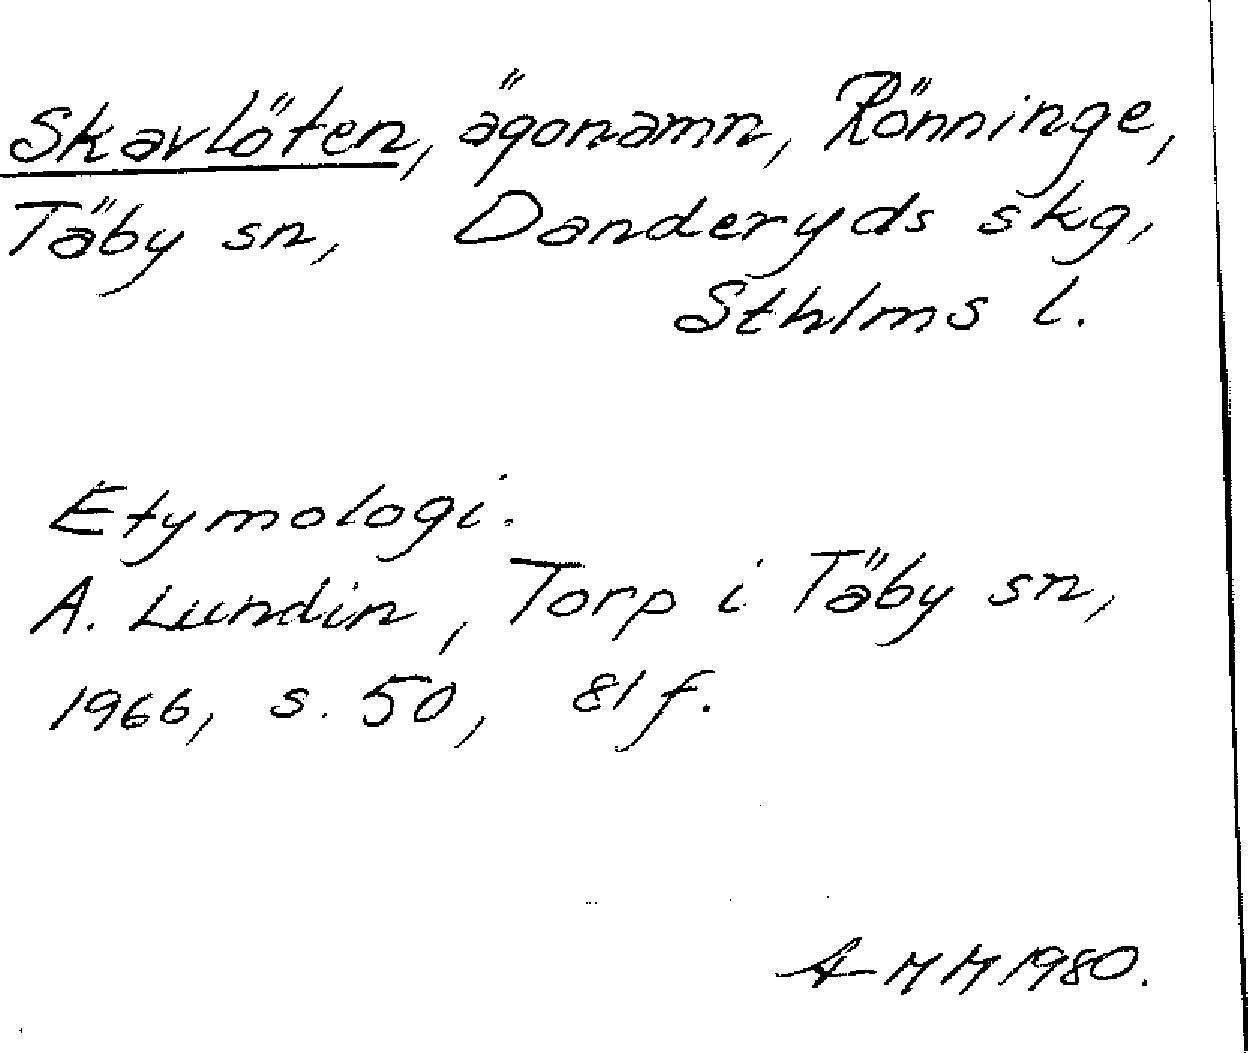 Skavlöten, ägonamn, Rönninge,
Täby sn, Danderyds skg,
Sthlms l.
Etymologi.
A. Lundin, Torp i Täby sn,
1966, s. 50, 81 f.
AMM 1980.